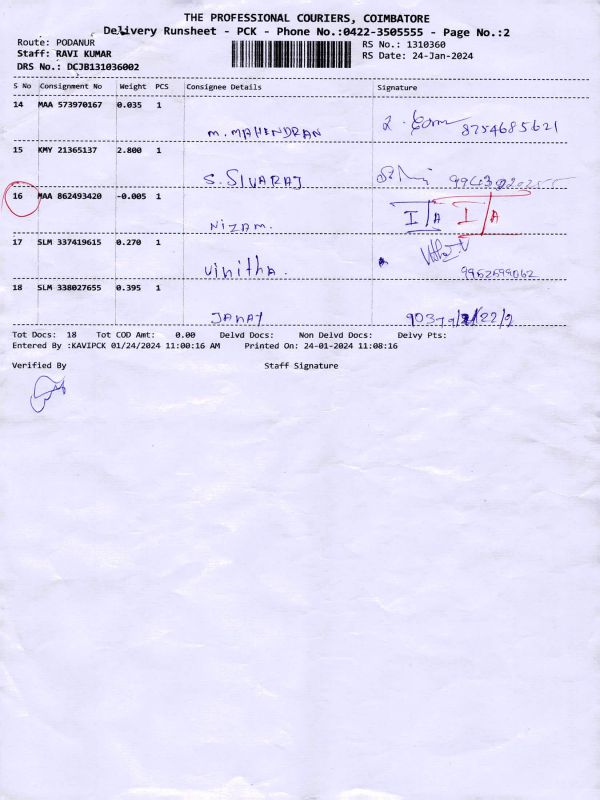 THE PROFESSIONAL COURIERS, COIMBATORE
Delivery Runsheet - PCK - Phone No.:0422-3505555 - Page No.:2
Route: PODANUR
RS No.: 1310360
Staff: RAVI KUMAR
RS Date: 24-Jan-2024
DRS No.: DCJB131036002
S No Consignment No Weight PCS Consignee Details Signature
14 MAA 573970167 0.035 1
M. MAHENDRAN 8754685621
15 KMY 21365137 2.800 1
S. SIVARAJ
16 MAA 862493420 -0.005 1
I/A I/A
NIZAM.
17 SLM 337419615 0.270 1
Vinitha. 9952699062
18 SLM 338027655 0.395 1
JANAT
Tot Docs: 18 Tot COD Amt: 0.00 Delvd Docs: Non Delvd Docs: Delvy Pts:
Entered By :KAVIPCK 01/24/2024 11:00:16 AM Printed On: 24-01-2024 11:08:16
Verified By Staff Signature